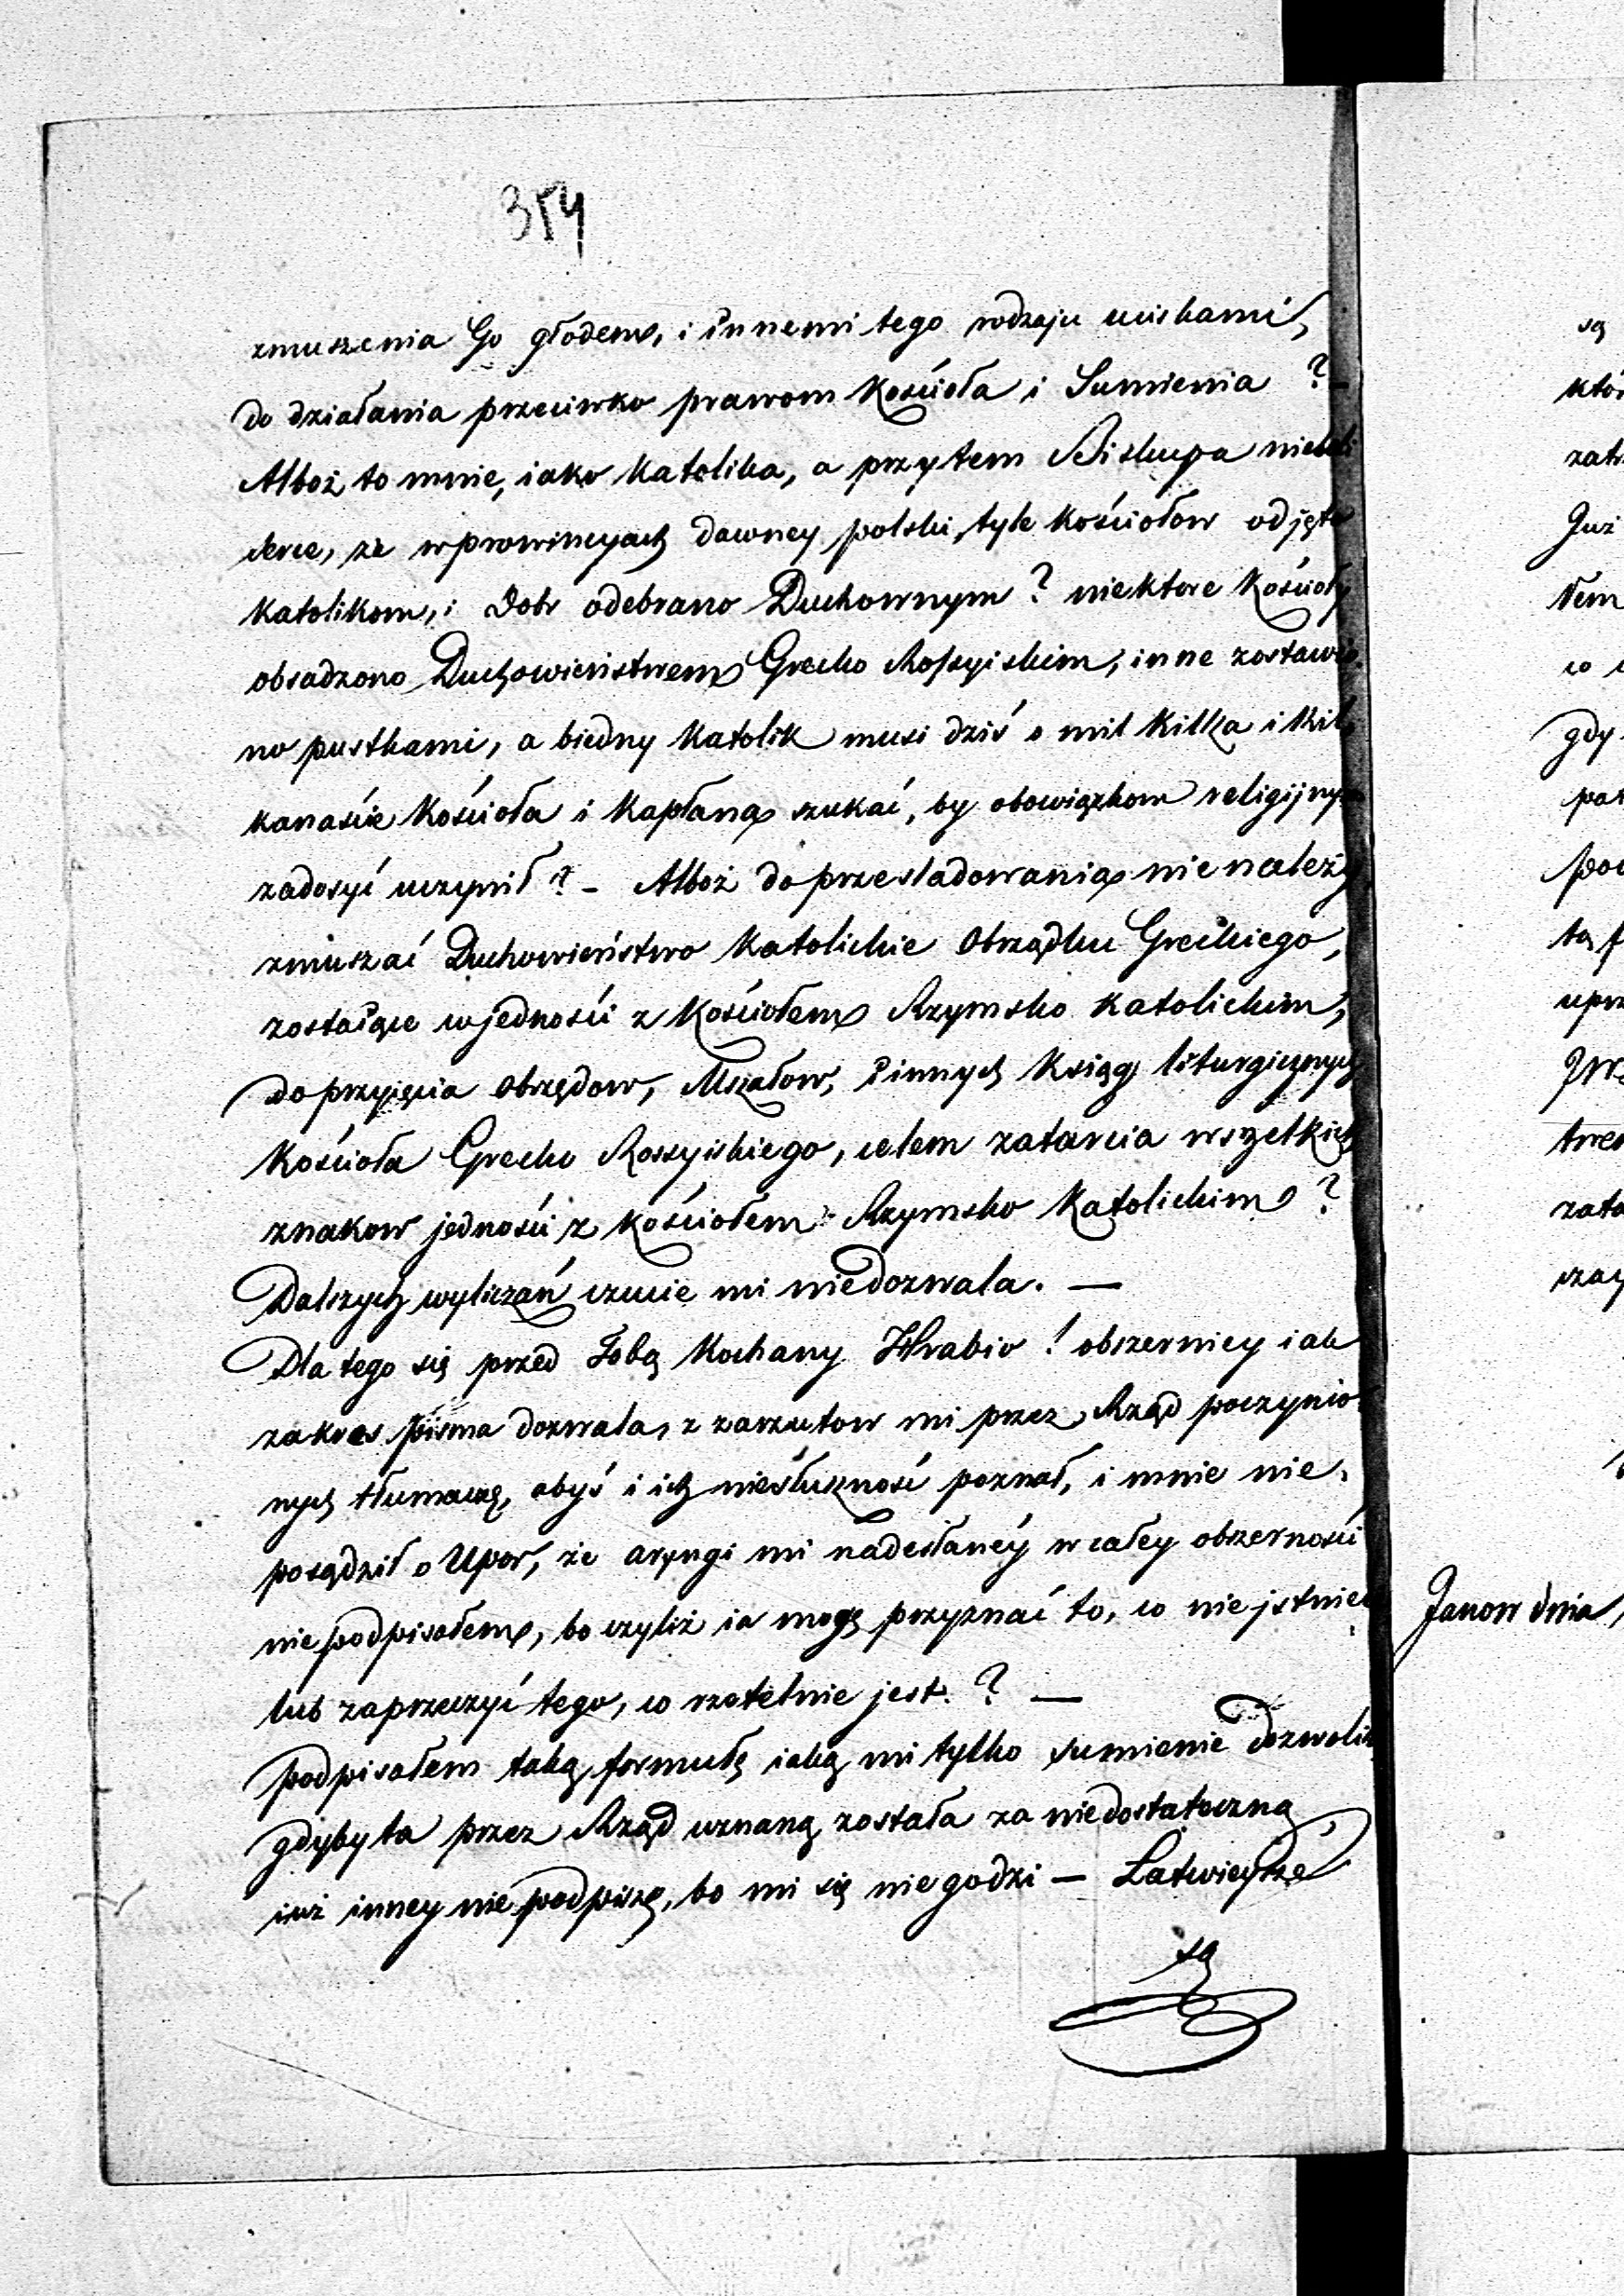 354
zmuszenia Go głodem, i innemi tego rodzaju uciskami,
do działania przeciwko prawom Kościoła i Sumienia ? –
Alboż to mnie, iako Katolika, a przytem Biskupa nieboli
serce, że w prowincyach dawney polski, tyle Kościołow odjęto
Katolikom, i Dobr odebrano Duchownym ? niektore Kościoły
obsadzono Duchowieństwem Grecko Rossyiskim, inne zostawio
no pustkami, a biedny Katolik musi dziś o mil kilka i kil,
kanaście Kościoła i Kapłana szukać, by obowiązkom religijnym
zadosyć uczynił ? – Alboż do przesladowania nie należy
zmuszać Duchowieństwo Katolickie Obrządku Greckiego,
zostaiące w jedności z Kościołem Rzymsko Katolickim,
do przyięcia Obrzędow, Mszałow, i innych Ksiąg liturgicznych
Kościoła Grecko Rossyiskiego, celem zatarcia wszelkich
znakow jedności z Kościołem Rzymsko Katolickim ?
Dalszych wyliczań czucie mi niedozwala. —
Dla tego się przed Tobą Kochany Hrabio ! obszerniey iak
zakres pisma dozwala, z zarzutow mi przez Rząd poczynio
nych tłumaczę, abyś i ich niesłuszność poznał, i mnie nie,
posądził o Upor, że aryngi mi nadesłaney w całey obszerności
nie podpisałem, bo czyliż ia mogę przyznać to, co nie jstnieie
lub zaprzeczyć tego, co rzetelnie jest. ? —
podpisałem taką formułę iaką mi tylko sumienie dozwoliło
gdyby ta przez Rząd uznaną została za niedostateczną
iuż inney nie podpiszę, bo mi się nie godzi — Łatwieysze
są
są
Już
co
gdy
Janow dnia